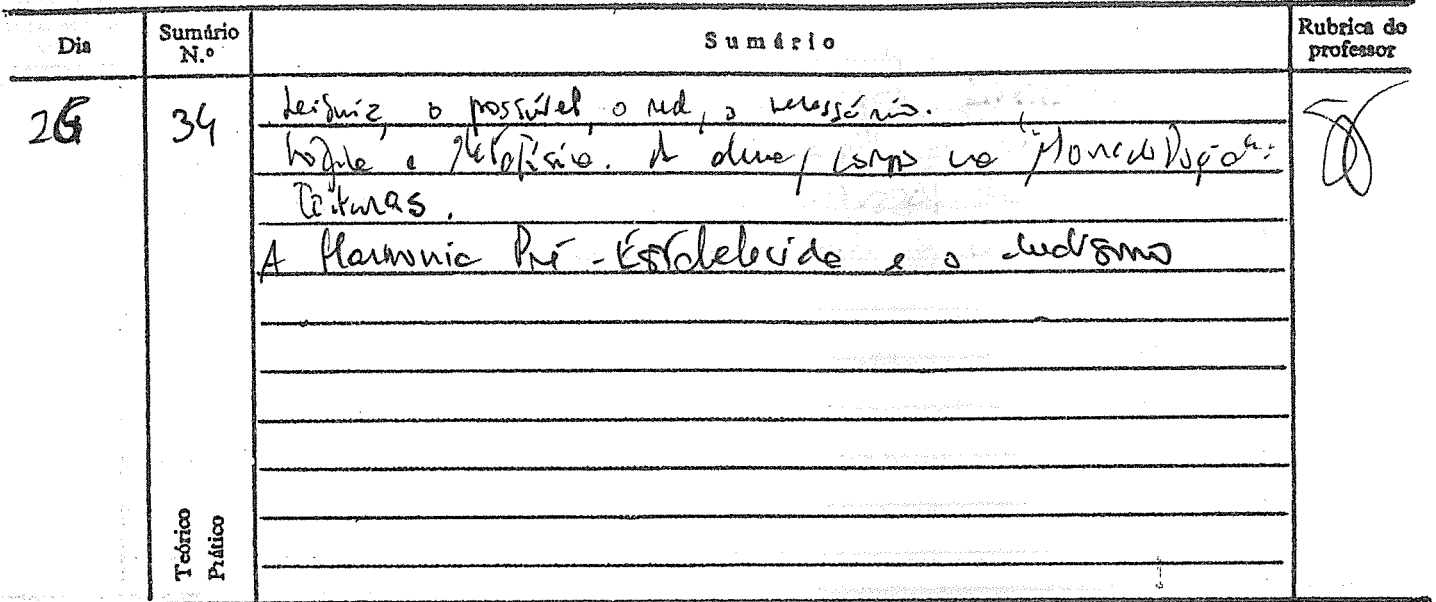 Dia
Sumário N.º
Sumário
Rubrica do professor
26
34
Leibniz, o possível, o real, o necessário.
Lógica e Metafísica. A alma, corpo na "Monadologia":
Leituras.
A Harmonia Pré-Estabelecida e o
Teórico
Prático